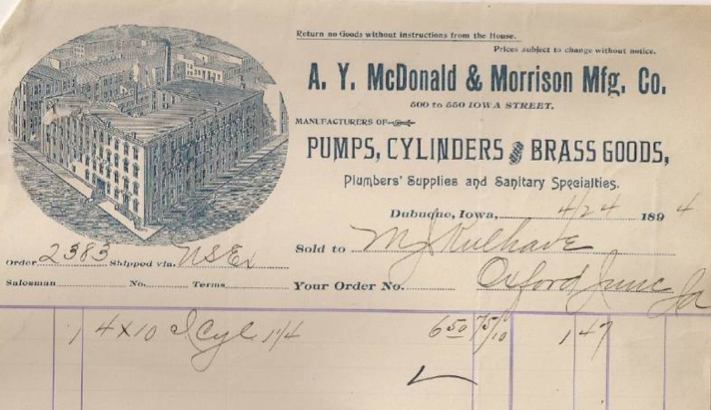 Return no Goods without instructions from the House.
Prices subject to change without notice.
A. Y. McDonald & Morrison Mfg. Co.
500 to 550 IOWA STREET.
MANUFACTURERS OF
PUMPS, CYLINDERS AND BRASS GOODS,
Plumbers' Supplies and Sanitary Specialties.
Dubuque, Iowa, 4/24 1894
Order 2383 Shipped via. U S Ex
Sold to M J Kulhave
Salesman No. Terms
Your Order No. Oxford Junc Ia
1 4x10 I Cyl 1 1/4 6 50 75/10 1 47